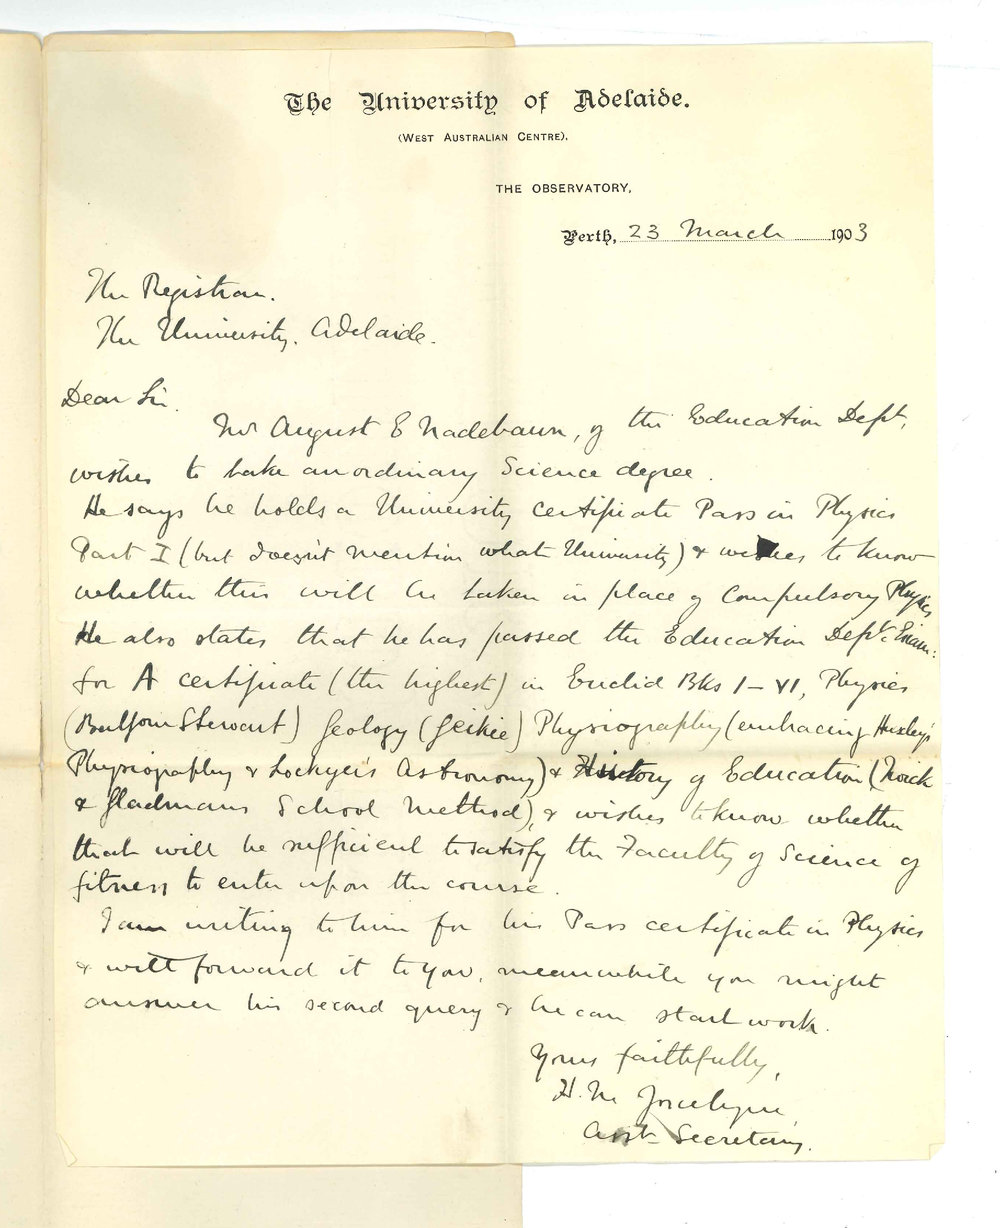 The University of Adelaide.
(West Australian Centre).
THE OBSERVATORY,
Perth, 23 March 1903
The Registrar.
The University, Adelaide.
Dear Sir.
Mr August E Nadebaum, of the Education Dept,
wishes to take an ordinary Science degree.
He says he holds a University certificate Pass in Physics
Part I (but doesn't mention what University) & wishes to know
whether this will be taken in place of Compulsory Physics
He also states that he has passed the Education Dept. Exam:
for A certificate (the highest) in Euclid Bks I - VI, Physics
(Balfour Stewart) Geology (Geikie) Physiography (embracing Huxley's
Physiography & Lockyer's Astronomy) & History of Education (Quick
& Gladmans School Method), & wishes to know whether
that will be sufficient to satisfy the Faculty of Science of
fitness to enter upon the course.
I am writing to him for his Pass certificate in Physics
& will forward it to you, meanwhile you might
answer his second query & he can start work.
Yours faithfully,
H. M Jocelyne
Asst Secretary.